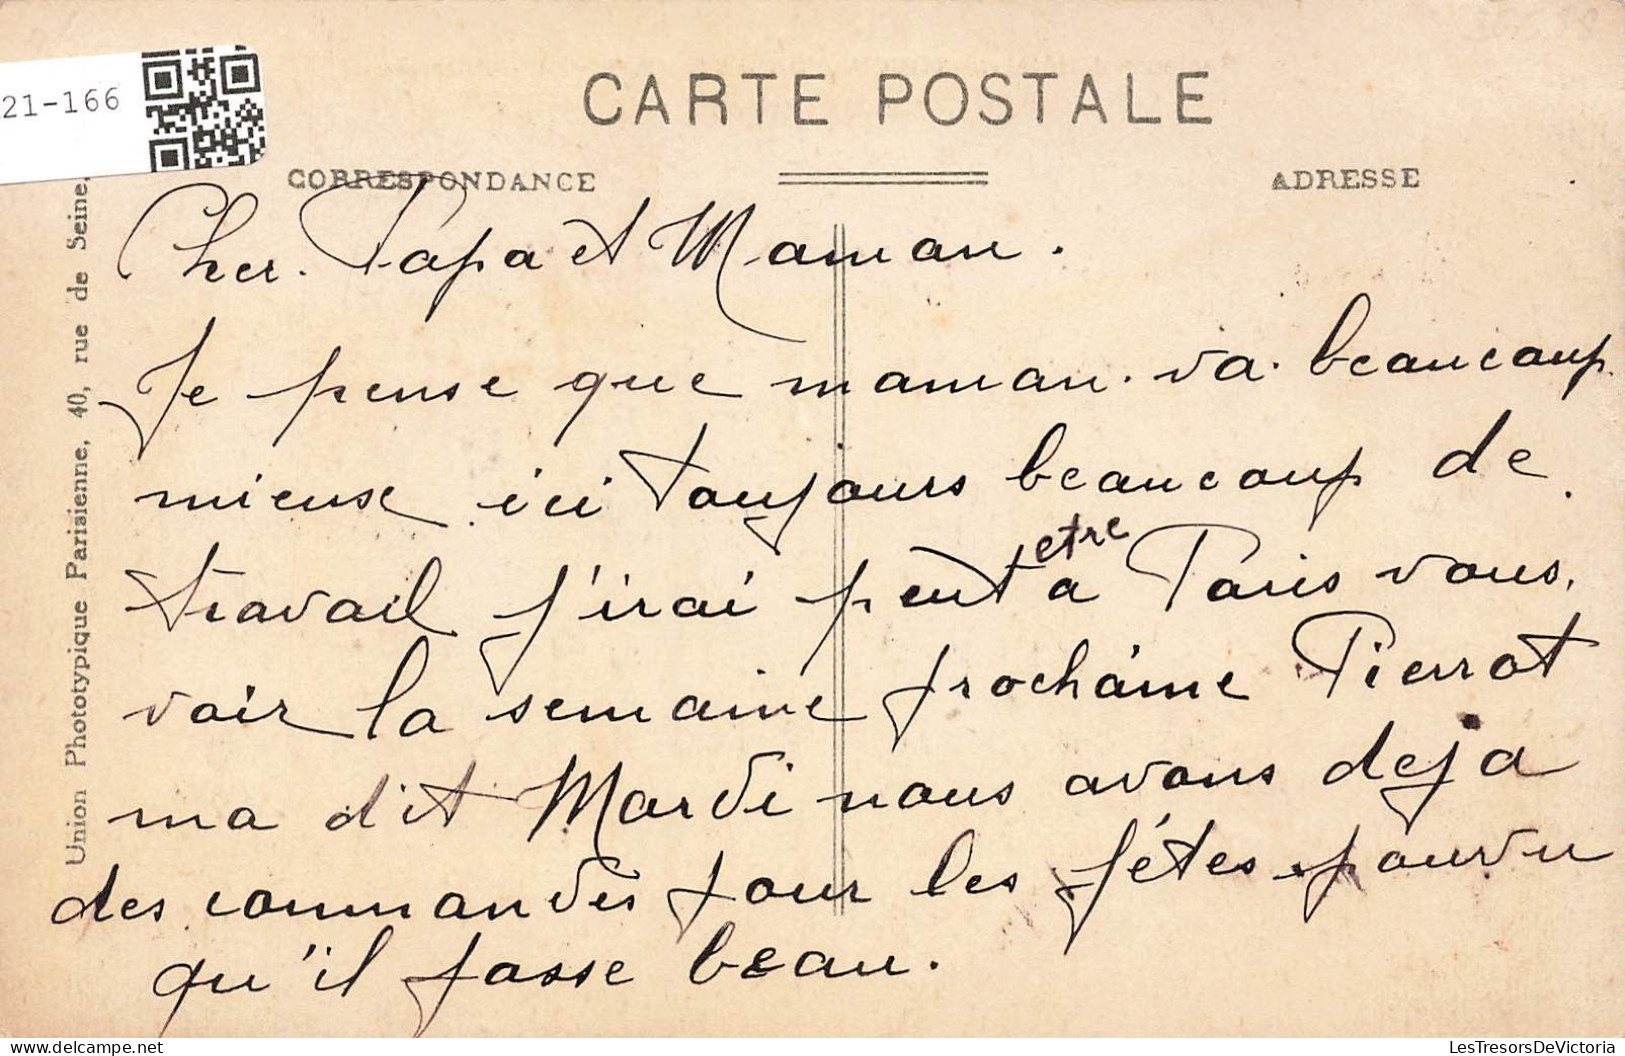 21-166
CARTE POSTALE
CORRESPONDANCE
ADRESSE
Union Phototypique Parisienne, 40, rue de Seine.
Cher. Papa et Maman.
Je pense que maman. va. beaucoup.
mieuse ici toujours beaucoup de
travail j'irai peut etre a Paris vous.
voir la semaine prochaine Pierrot
ma dit Mardi nous avons deja
des commandes pour les fêtes pourvu
qu'il fasse beau.
LesTresorsDeVictoria
www.delcampe.net